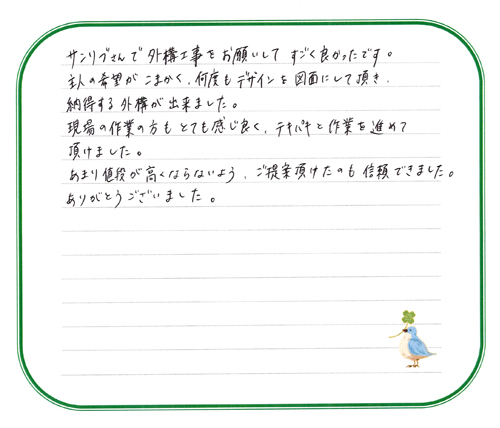 サンリブさんで外構工事をお願いして すごく良かったです。
主人の希望がこまかく、何度もデザインを図面にして頂き、
納得する外構が出来ました。
現場の作業の方もとても感じ良く、テキパキと作業を進めて
頂けました。
あまり値段が高くならないよう、ご提案頂けたのも信頼できました。
ありがとうございました。